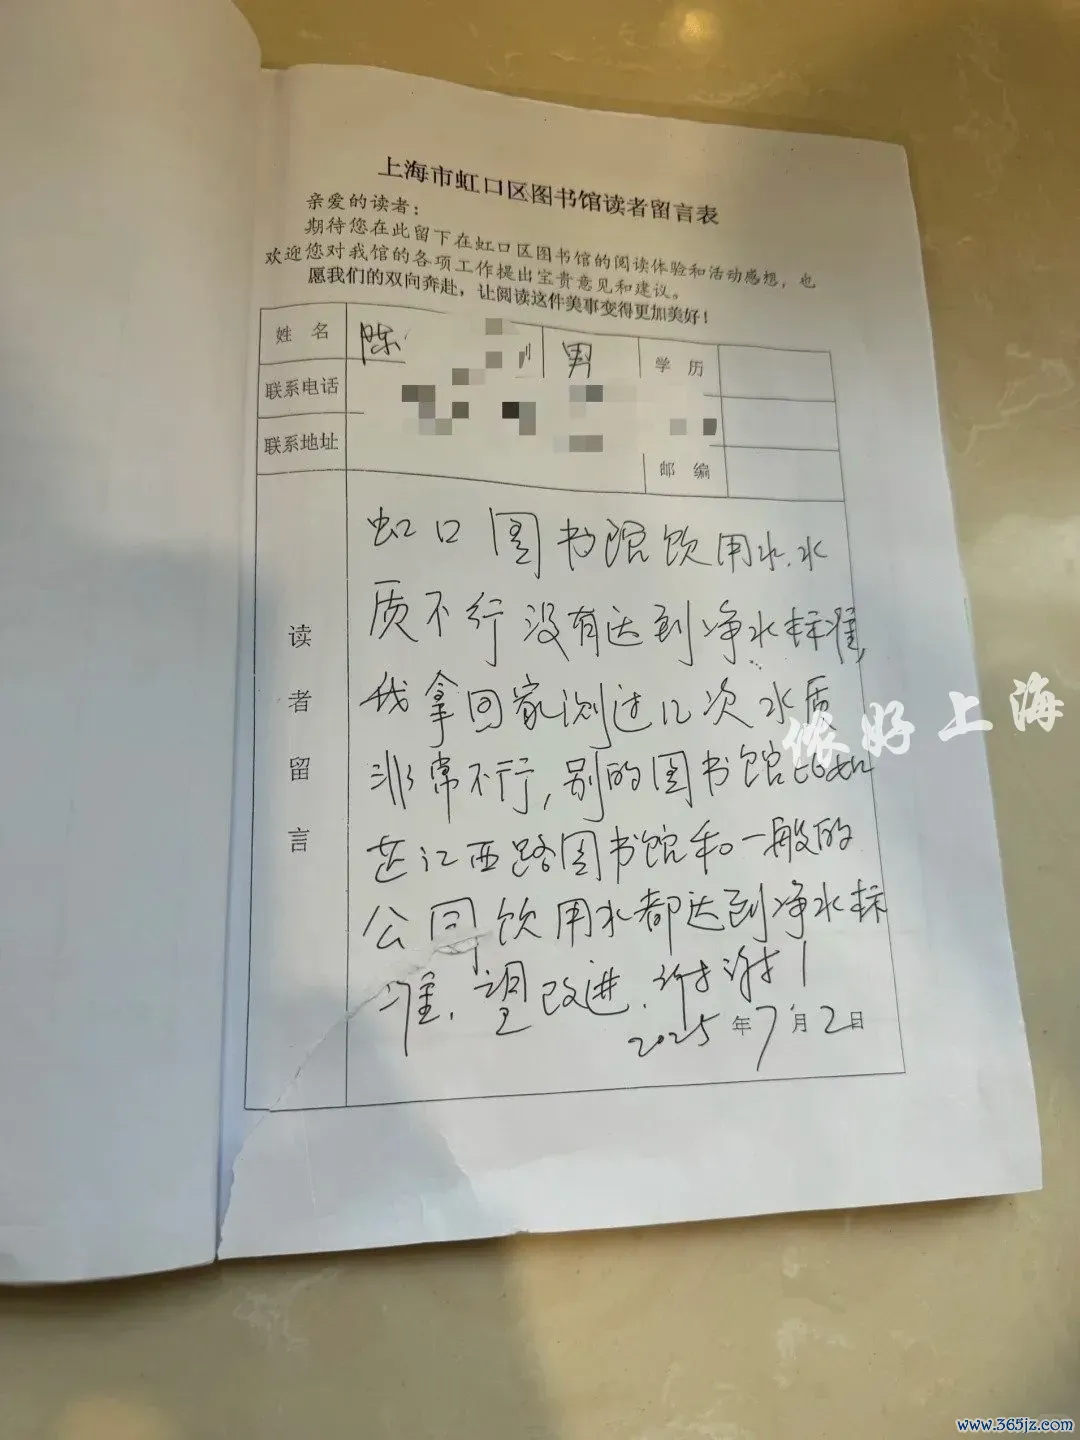 上海市虹口区图书馆读者留言表
亲爱的读者：
期待您在此留下在虹口区图书馆的阅读体验和活动感想，也
欢迎您对我馆的各项工作提出宝贵意见和建议。
愿我们的双向奔赴，让阅读这件美事变得更加美好！
姓 名 陈 男 学 历
联系电话
联系地址
邮 编
读者留言
虹口图书馆饮用水.水
质不行没有达到净水标准,
我拿回家测过几次水质
非常不行,别的图书馆比如
芷江西路图书馆和一般的
公司饮用水都达到净水标
准.望改进.谢谢!
2025年7月2日
侬好上海
www.365jz.com